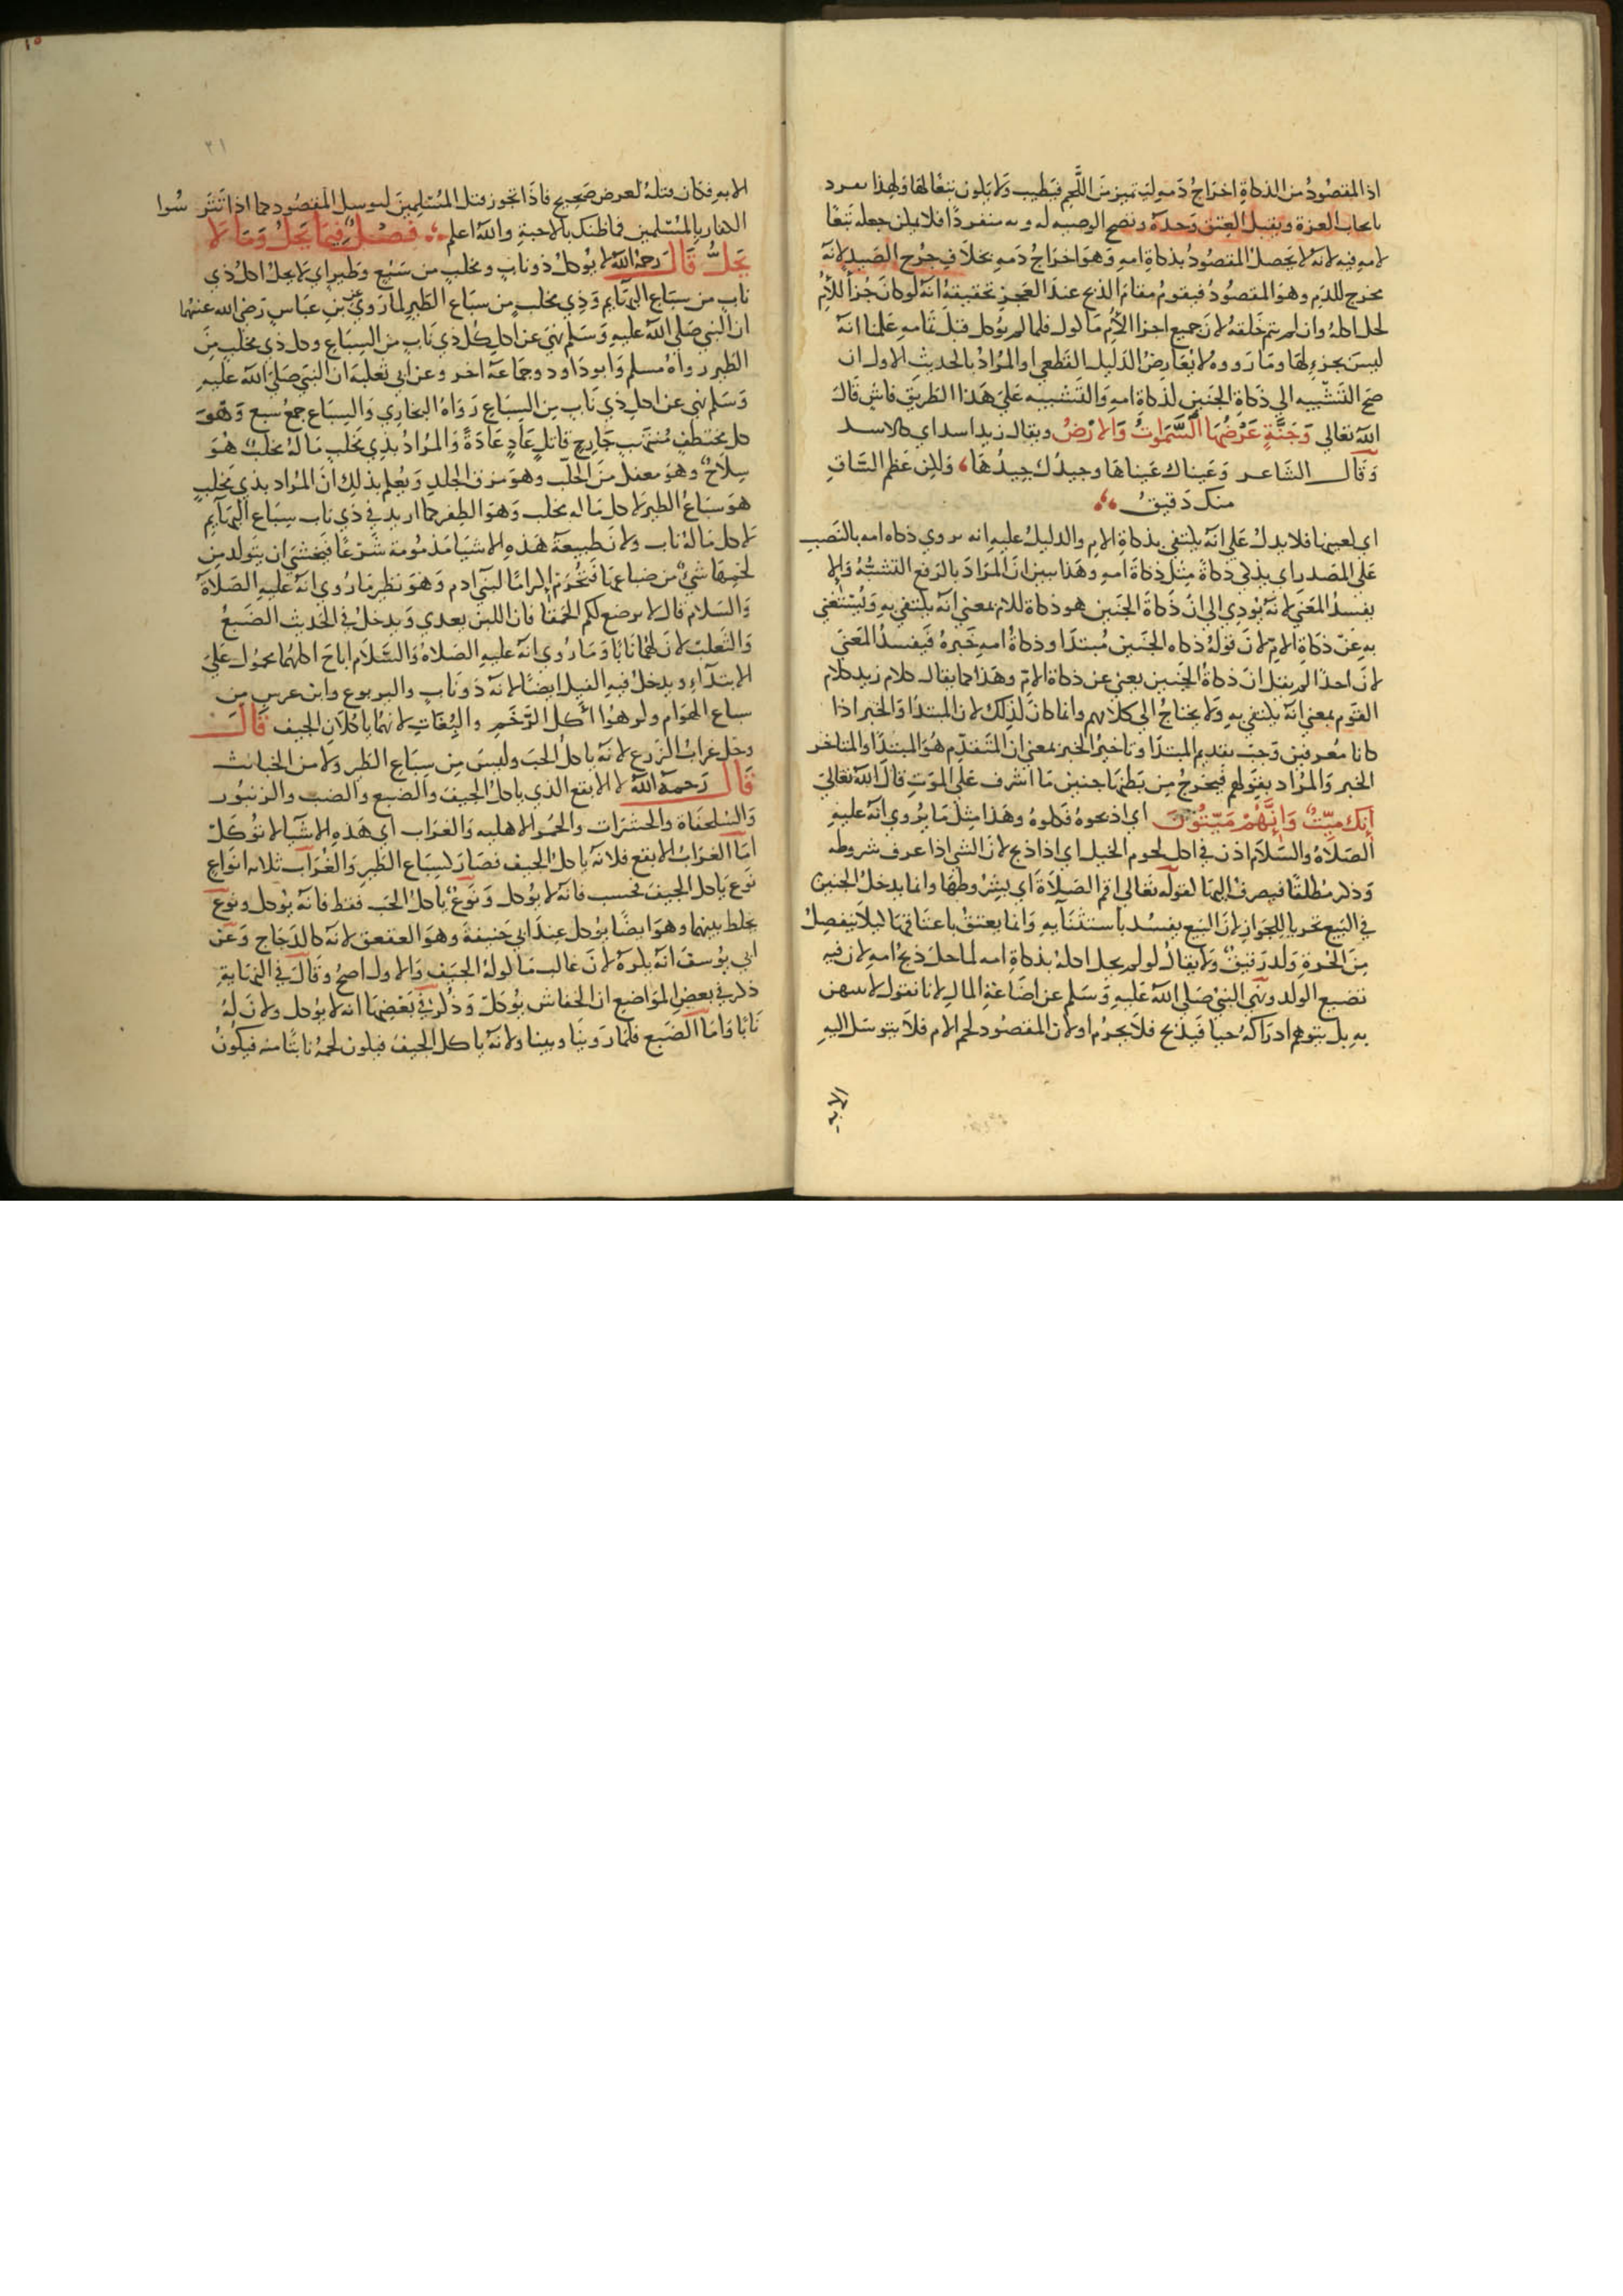 اذ المقصود من الذكاة اخراج دمه ليتميز من اللحم فيطيب ولا يكون تبعا لها ولهذا يفرد
بايجاب الغرة ويقبل العتق وحده وتصح الوصيه له وبه منفردا فلا يمكن جعله تبعا
لامه فيه لانه لا يحصل المقصود بذكاة امه وهو اخراج دمه بخلاف جرح الصيد لانه
مخرج للدم وهو المقصود فيقوم مقام الذبح عند العجز تحقيقه انه لو كان جزأ للأم
لحل اكله وان لم يتم خلقه لان جميع اجزا الأم ماكول فلما لم يوكل قبل تمامه علمنا انه
ليس بجزء لها وما رووه لا يعارض الدليل القطعي او المراد بالحديث الاول ان
صح التشبيه اي ذكاة الجنين كذكاة امه والتشبيه على هذا الطريق فاش قال
الله تعالى وجنة عرضها السموات والارض ويقال زيد اسد اي كالاسد
وقال الشاعر وعيناك عيناها وجيدك جيدها ولكن عظم الساق
منك دقيق
اي كعينيها فلا يدل على انه يكتفي بذكاة الام والدليل عليه انه يروي ذكاه امه بالنصب
على المصدر اي يذكي ذكاة مثل ذكاة امه وهذا يبين ان المراد بالرفع التشبه والا
يفسد المعنى لانه يؤدي الى ان ذكاة الجنين هو ذكاة للام بمعنى انه يكتفي به ويستغني
به عن ذكاة الام لان قوله ذكاه الجنين مبتدا وذكاة امه خبره فيفسد المعنى
لان احدا لم يقل ان ذكاة الجنين يغني عن ذكاة الام وهذا كما يقال كلام زيد كلام
القوم بمعنى انه يكتفي به ولا يحتاج الى كلامهم وانما كان كذلك لان المبتدا والخبر اذا
كانا معرفين وجب تقديم المبتدا وتاخير الخبر بمعنى ان المتقدم هو المبتدا والمتاخر
الخبر والمراد بقولهم فيخرج من بطنها جنين ما اشرف على الموت قال الله تعالى
انك ميت وانهم ميتون اي اذبحوه فكلوه وهذا مثل ما يروي انه عليه
الصلاه والسلام اذن في اكل لحوم الخيل اي اذا ذبح لان الشي اذا عرف شروطه
وذكر مطلقا فيصرف اليها لقوله تعالى اقم الصلاة اي بشروطها وانما يدخل الجنين
في البيع تحريا للجواز لان البيع يفسد باستثنآيه وانما يعتق باعتاقها ليلا ينفصل
من الحرة ولد رقيق ولا يقال لو لم يحل اكله بذكاة امه لما حل ذبح امه لان فيه
تضيع الولد ونهي النبي صلى الله عليه وسلم عن اضاعة المال لانا نقول لا يتيقن
به بل يتوهم ادراكه حيا فيذبح فلا يحرم او لان المقصود لحم الام فلا يتوسل اليه
الا به
٢١
الا به فكان قتله لغرض صحيح فاذا تجوز قتل المسلمين ليوسل المقصود كما اذا تترسوا
الكفار بالمسلمين فما ظنك بالاجنة والله اعلم فصل فيما يحل وما لا
يحل قال رحمه الله لا يوكل ذو ناب ومخلب من سبع وطير اي لا يحل اكل ذي
ناب من سباع البهآيم وذي مخلب من سباع الطير لما روي عن بن عباس رضي الله عنهما
ان النبي صلى الله عليه وسلم نهي عن اكل كل ذي ناب من السباع وكل ذي مخلب من
الطير رواه مسلم وابو داود وجماعة اخر وعن ابي ثعلبة ان النبي صلى الله عليه
وسلم نهي عن اكل ذي ناب من السباع رواه البخاري والسباع جمع سبع وهو
كل مختطف منتهب جارح قاتل عاد عادة والمراد بذي مخلب ما له مخلب هو
سلاح وهو مفعل من الخلب وهو مزق الجلد ويعلم بذلك ان المراد بذي مخلب
هو سباع الطير لا كل ما له مخلب وهو الظفر كما اريد في ذي ناب سباع البهآيم
لا كل ما له ناب ولان طبيعة هذه الاشيا مذمومة شرعا فيخشي ان يتولد من
لحمها شي من ضباعها فتحرم اكراما لبني آدم وهو نظير ما روي انه عليه الصلاة
والسلام قال لا يرضع لكم الحمقا فان اللبن يعدي ويدخل في الحديث الضبع
والثعلب لان لهما نابا وما روي انه عليه الصلاة والسلام اباح اكلهما محمول على
الابتدآء ويدخل فيه الفيل ايضا لانه ذو ناب واليربوع وابن عرس من
سباع الهوام وكرهوا اكل الرخم والبغاث لانهما ياكلان الجيف قال
وحل غراب الزرع لانه ياكل الحب وليس من سباع الطير ولا من الخبائث
قال رحمه الله لا الابقع الذي ياكل الجيف والضبع والضب والزنبور
والسلحفاة والحشرات والحمر الاهليه والغراب اي هذه الاشيا لا توكل
اما الغراب الابقع فلانه ياكل الجيف فصار كسباع الطير والغراب ثلاثه انواع
نوع ياكل الجيف فحسب فانه لا يوكل ونوع ياكل الحب فقط فانه يوكل ونوع
يخلط بينهما وهو ايضا يوكل عند ابي حنيفة وهو العقعق لانه كالدجاج وعن
ابي يوسف انه يكره لان غالب ماكوله الجيف والاول اصح وقال في النهاية
ذكر في بعض المواضع ان الخفاش يوكل وذكر في بعضها انه لا يوكل ولان له
نابا واما الضبع فلما روينا وبينا ولانه ياكل الجيف فيكون لحمه نابتا منه فيكون